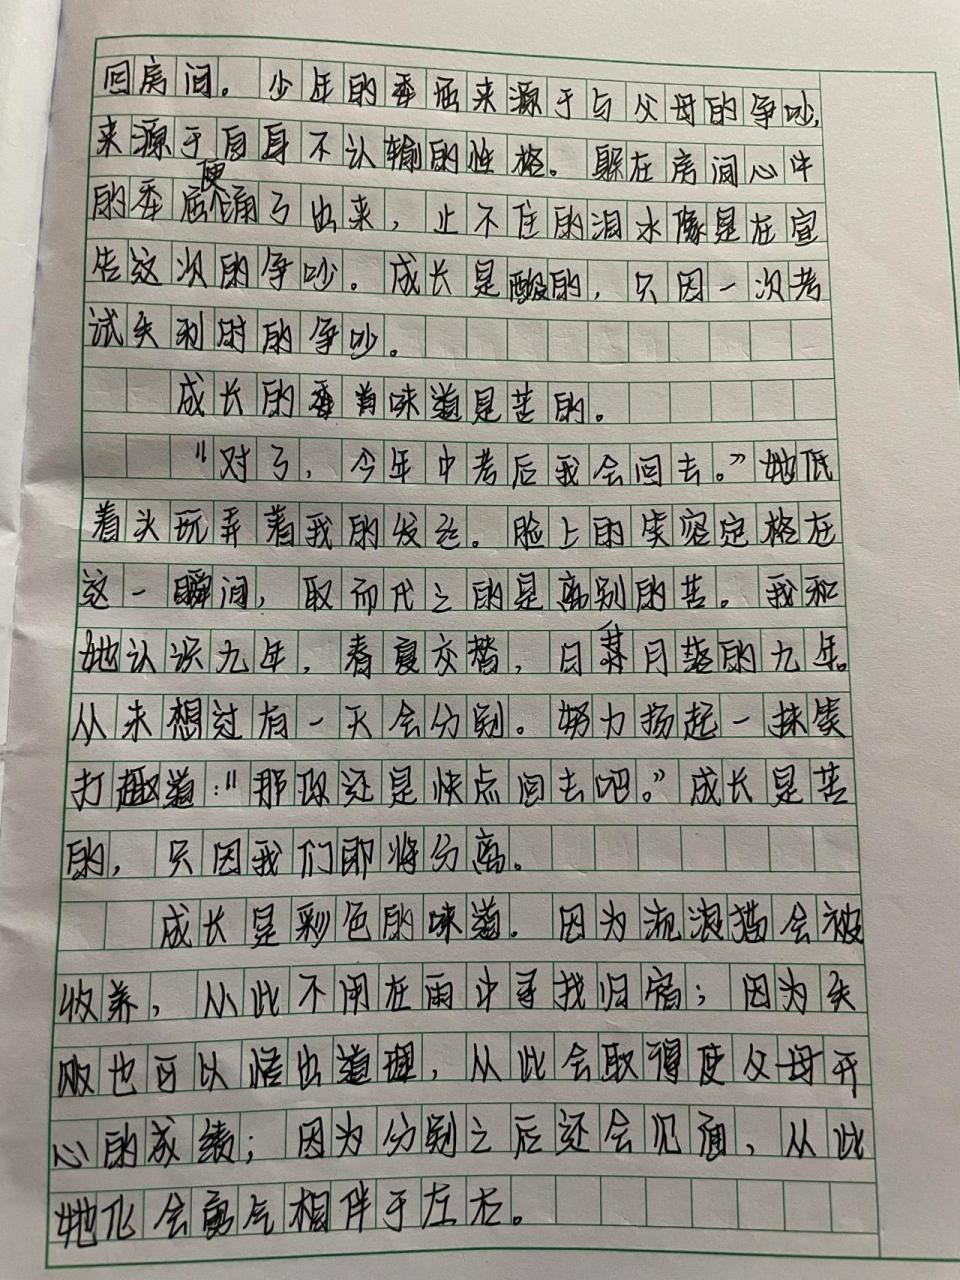 回房间。少年的委屈来源于与父母的争吵,
来源于自身不认输的性格。躲在房间心中
的委屈便涌了出来，止不住的泪水像是在宣
告这次的争吵。成长是酸的，只因一次考
试失利时的争吵。
成长的味道是苦的。
“对了，今年中考后我会回去。”她低
着头玩弄着我的发丝。脸上的笑容定格在
这一瞬间，取而代之的是离别的苦。我和
她认识九年，春夏交替，日升月落的九年。
从未想过有一天会分别。努力扬起一抹笑
打趣道：“那你还是快点回去吧。”成长是苦
的，只因我们即将分离。
成长是彩色的味道。因为流浪猫会被
收养，从此不用在雨中寻找归宿；因为失
败也可以悟出道理，从此会取得使父母开
心的成绩；因为分别之后还会见面，从此
她化会氧气相伴于左右。